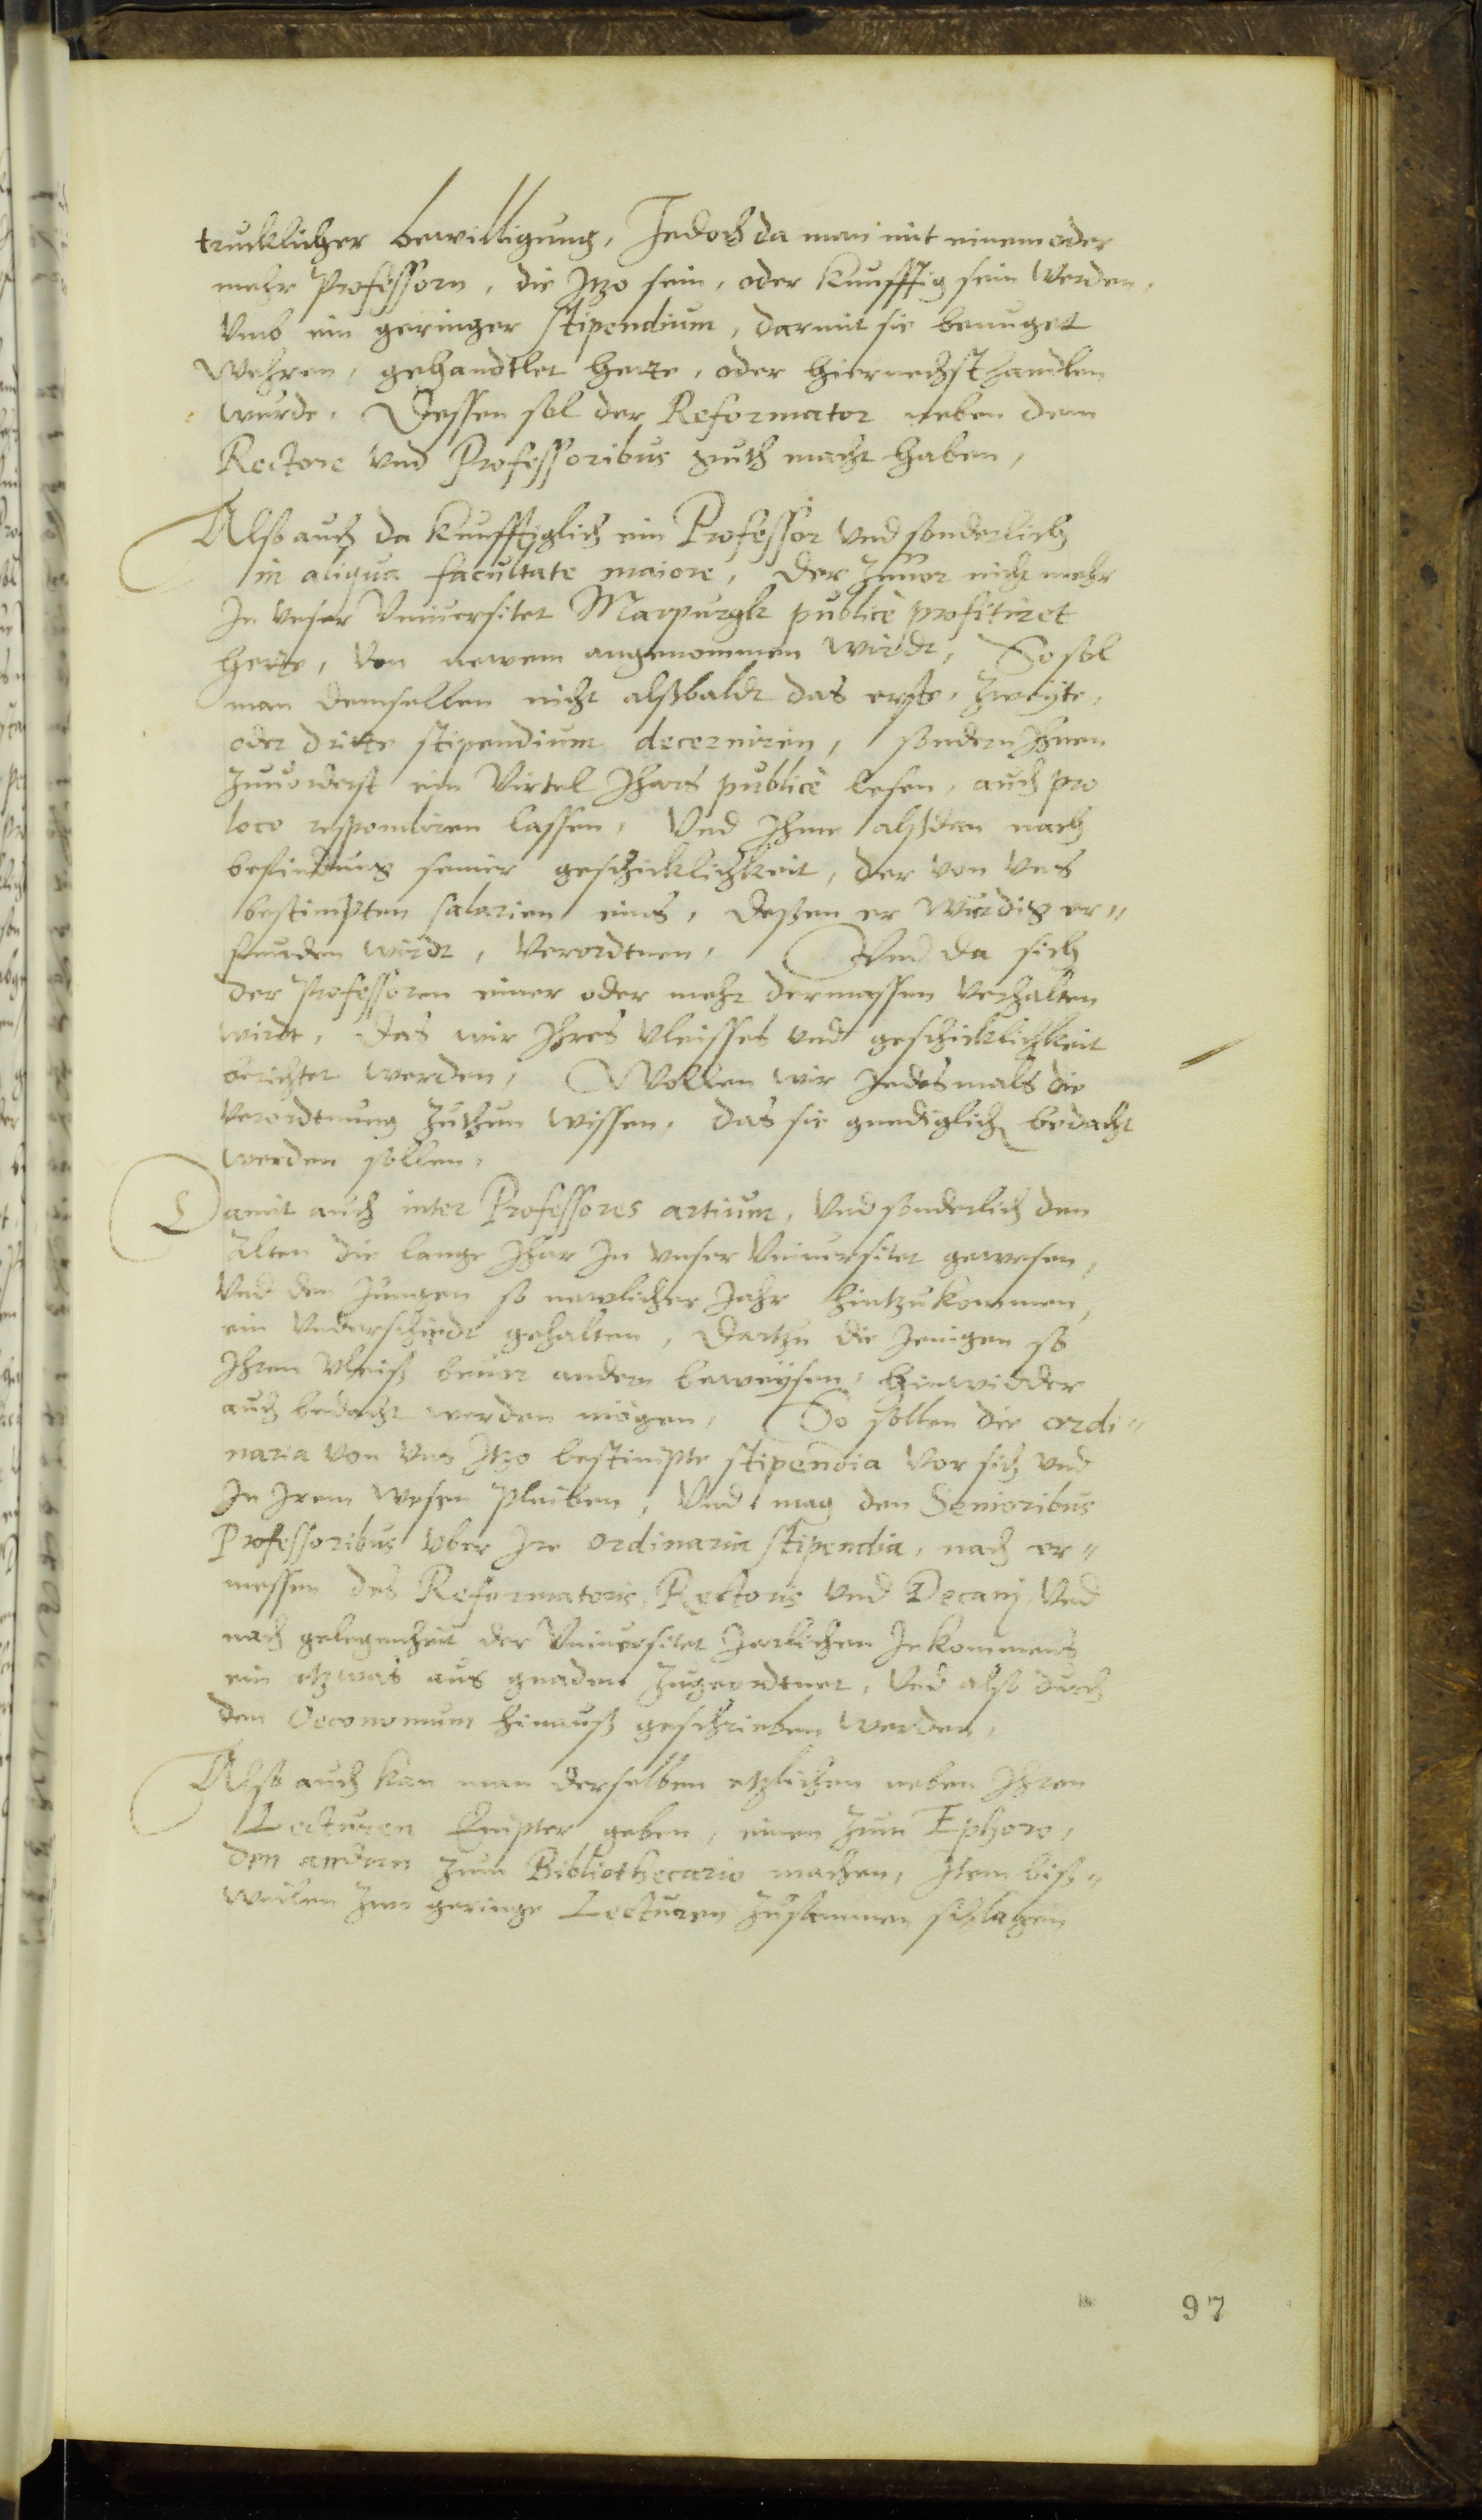 trucklicher bewilligung, Jedoch da man mit einem oder
mehr Professorn, die Jtzo sein, oder kunfftig sein werden,
Vmb ein geringer stipendium, darmit sie benuget
wehren, gehandtlet hette, oder hiernechst handlen
wurde, Dessen sol der Reformator neben dem
Rectore vnd Professoribus guth macht haben,
Also auch da kunfftiglich ein Professor vnd sonderlich
in aliqua facultate maiore, der zuuor nicht mehr
Jn vnser Vniuersitet Marpurgk publicè profitiret
hette, Von newem angenommen wirdt, So sol
man demselben nicht alßbaldt das erste, zweyte,
oder dritte stipendium decerniren, sondern Jhnen
zuuorderst ein Virtel Jhars publicè lesen, auch pro
loco respondiren lassen, Vnd Jhme alßdan nach
befindung seiner geschicklichkeit, der von vns
bestimpten salarien eins, dessen er wurdig er-
funden wirdt, Verordtnen, Vnd da sich
der Professoren einer oder mehr dermassen verhalten
wirdt, das wir Jhres vleisses vnd geschicklichkeit
berichtet werden, Wollen wir Jedesmals die
verordtnung zuthun wissen, das sie gnediglich bedacht
werden sollen,
Damit auch inter Professores artium, Vnd sonderlich den
alten die lange Jhar Jn vnser Vniuersitet gewesen,
Vnd den Jungen so newlicher Jahr hintzukommen,
ein Vnderschiedt gehalten, Dartzu die Jenigen so
Jhren vleiß beuor andern beweysen, hinwidder
auch bedacht werden mögen, So sollen die ordi-
naria von vns Jtzo bestimpte stipendia vor sich vnd
Jn Jrem wesen pleiben, Vnd mag den Senioribus
Professoribus vber Jre ordinaria stipendia, nach er-
messen des Reformatoris, Rectoris vnd Decanj, Vnd
nach gelegenheit der Vniuersitet Jarlichen Jnkommens
ein etzwas aus gnaden zugeordtnet, Vnd also durch
den Oeconomum hinauß geschrieben werden,
Also auch kan man derselben etzlichen neben Jhren
Lecturen Empter geben, einen zum Ephoro,
den andern zum Bibliothecario machen, Jtem biß-
weilen zwo geringe Lecturen zusammen schlagen
97